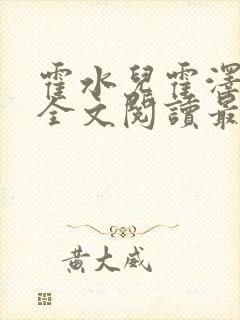 霍水兒霍澤
全文閱讀最
黃大威